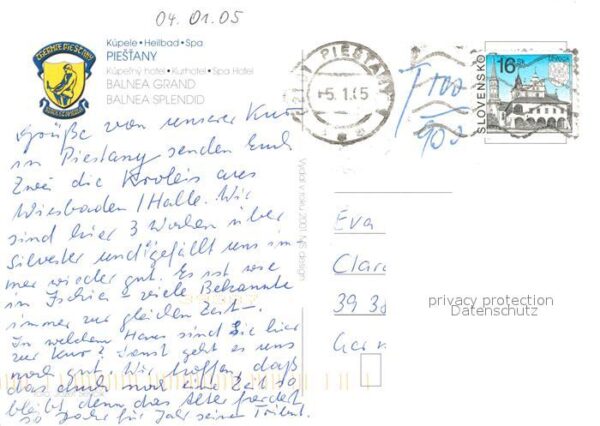 04.01.05
THERMIE PIEŠŤANY
Kúpele • Heilbad • Spa
PIEŠŤANY
Kúpeľný hotel • Kurhotel • Spa Hotel
BALNEA GRAND
BALNEA SPLENDID
Grüße von unserer Kur
in Piestany senden Euch
Zwei die Kroleis aus
Wiesbaden / Halle. Wir
sind hier 3 Wochen über
Silvester und gefällt uns im
mer wieder gut. Es ist wie
in Ischia – viele Bekannte
immer zur gleichen Zeit –.
In welchem Haus sind Sie hier
zur Kur? Sonst geht es uns
noch gut. Wir hoffen, daß
das auch noch eine Zeit so
bleibt, denn das Alter fordert
so Jahr für Jahr seinen Tribut.
Vydal v roku 2001 design
PIEŠŤANY 1
-5. 1. 05
SLOVENSKO
16 Sk
Levoča
Eva
Clara
39 38
Ger
privacy protection
Datenschutz